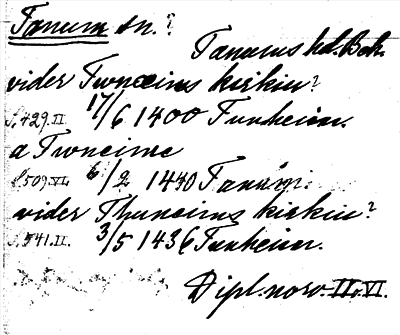 Tanum sn.?
Tanums hd. Boh.
vider Twneims kirkiu?
S. 429. II. 17/6 1400 Tunheim.
a Twneime
S. 509. VI. 6/2 1440 Tanum.
vider Thuneims kirkiu?
S. 541. II. 3/5 1436 Tunheim.
Dipl. norv. II. VI.